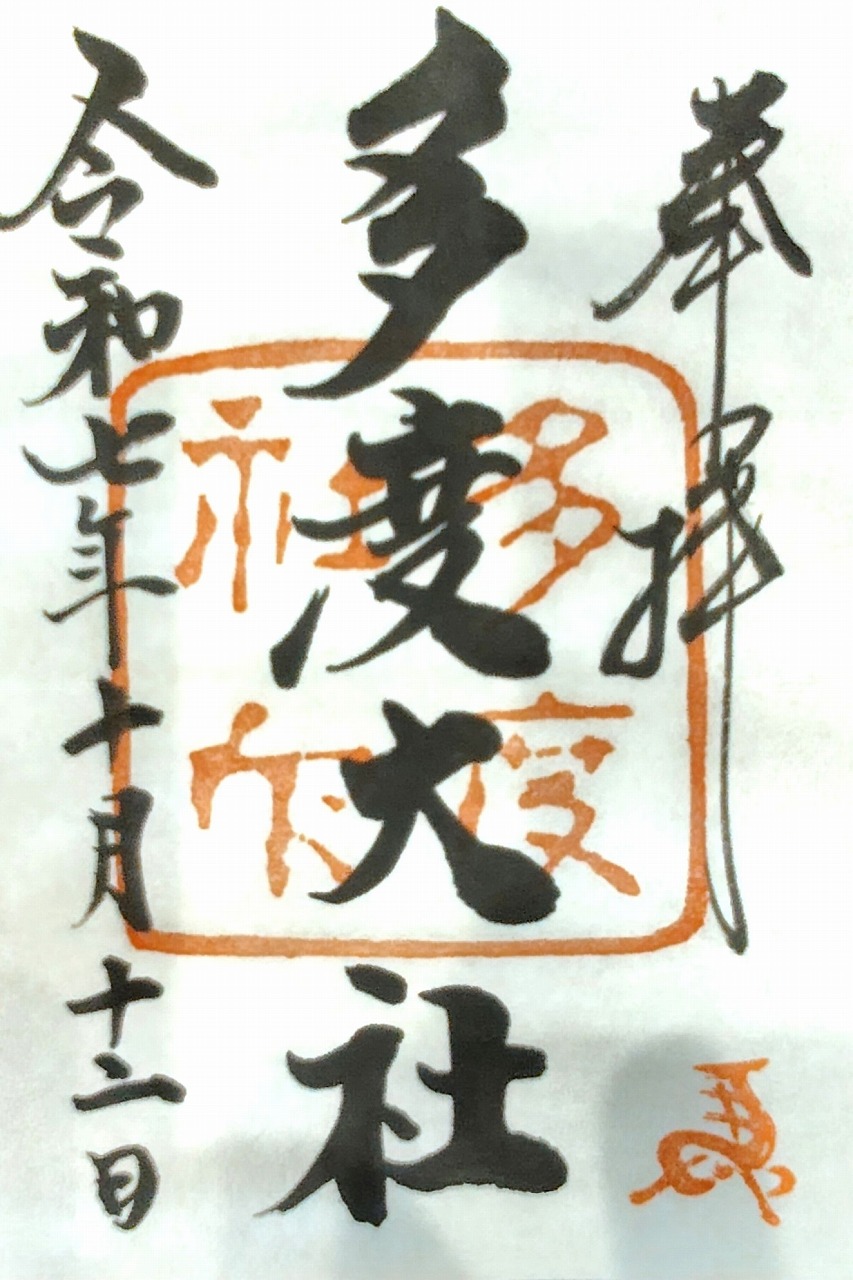 奉拝
多度大社
令和七年十月十二日
多度
社印
馬